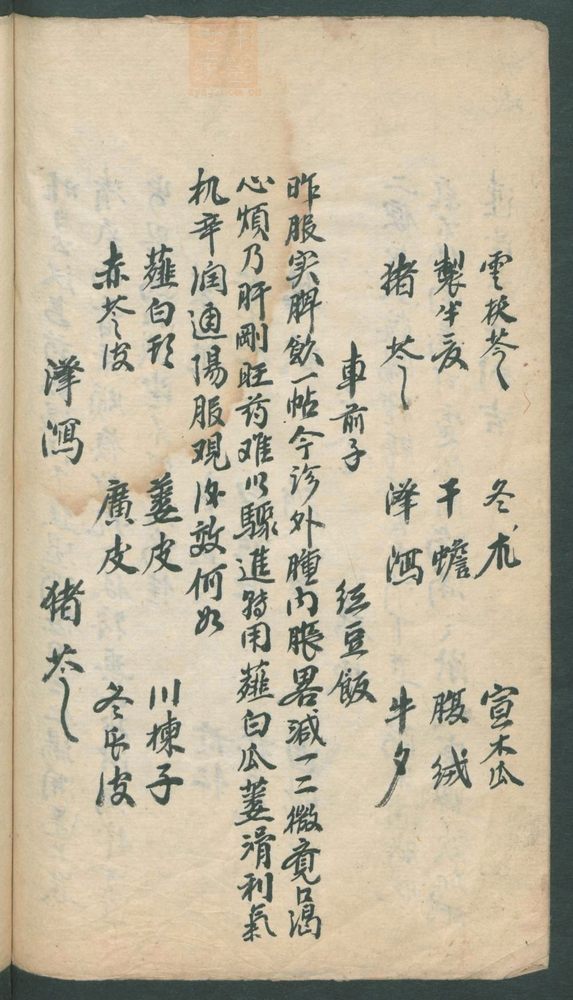 雲茯苓 冬朮 宣木瓜
製半夏 干蟾 腹绒
猪苓 泽瀉 牛夕
車前子 红豆飯
昨服实脾飲一帖今诊外腫内脹畧減一二微覺口渴
心煩乃肝剛旺药难以驟進特用薤白瓜蒌滑利氣
机辛润通陽服观後效何如
薤白 蒌皮 川楝子
赤苓皮 廣皮 冬瓜皮
泽瀉 猪苓